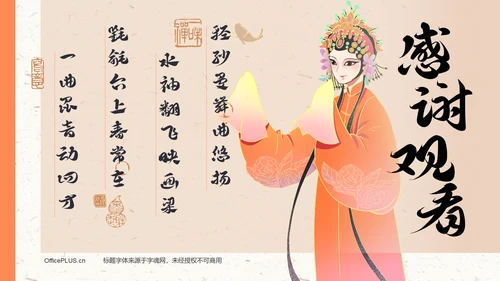 感谢
观看
轻纱曼舞曲悠扬
水袖翻飞映画梁
氍毹台上春常在
一曲音动四方
OfficePLUS.cn
标题字体来源于字魂网,未经授权不可商用